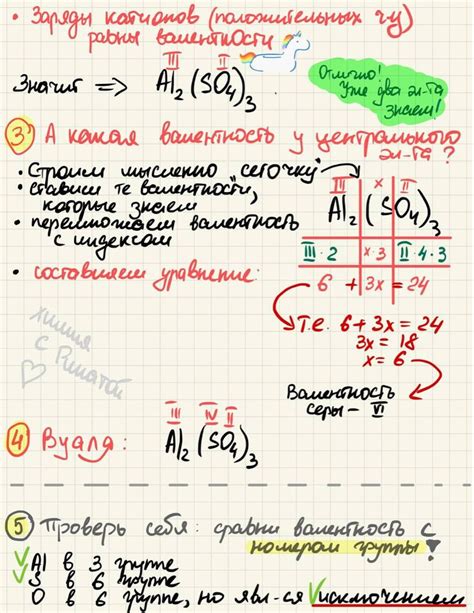 • Заряды катионов (положительных чу)
равны валентности
III II
Значит => Al₂(SO₄)₃
Отлично!
Уже два эл-та
знаем!
3 А какая валентность у центрального
эл-та?
• Строим мысленно "сеточку"
• ставим те валентности,
которые знаем
• перемножаем валентность
с индексом
III x II
Al₂(SO₄)₃
III·2 x·3 II·4·3
• составляем уравнение:
6 + 3x = 24
т.е. 6+3x = 24
3x = 18
x = 6
химия
с Ринатой
Валентность
серы – VI
III IV II
4 Вуаля: Al₂(SO₄)₃
5 Проверь себя: сравни валентность с
номером группы!
Al в 3 группе
S в 6 группе
O в 6 группе, но явл-ся исключением